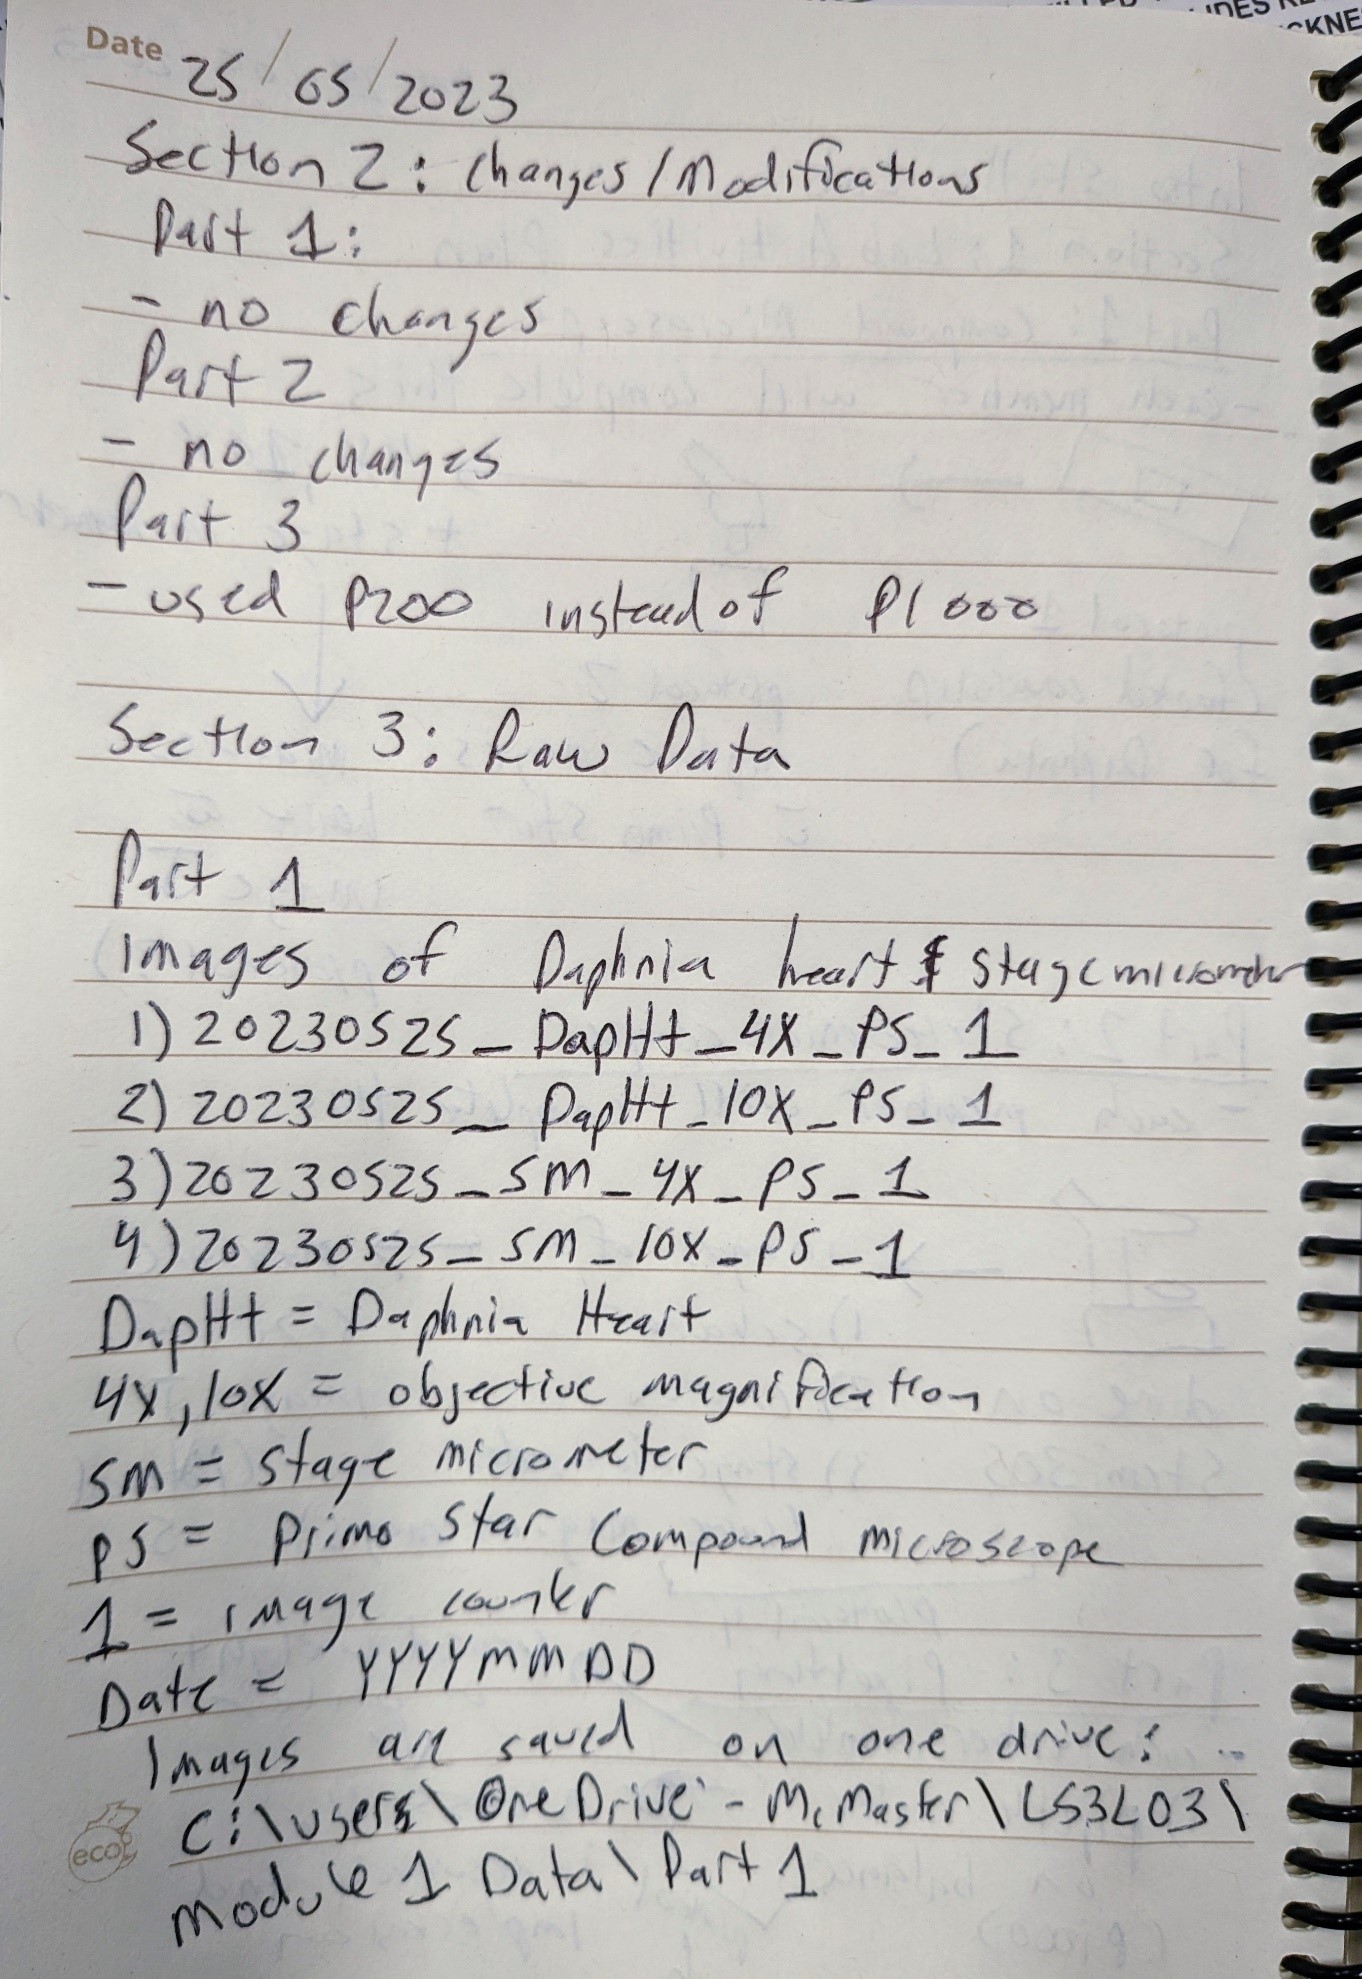 Date 25/05/2023
Section 2: Changes/Modifications
Part 1:
- no changes
Part 2
- no changes
Part 3
- used P200 instead of P1000
Section 3: Raw Data
Part 1
Images of Daphnia heart & stage micrometer
1) 20230525_DapHt_4X_PS_1
2) 20230525_DapHt_10X_PS_1
3) 20230525_SM_4X_PS_1
4) 20230525_SM_10X_PS_1
DapHt = Daphnia Heart
4X, 10X = objective magnification
SM = stage micrometer
PS = Primo Star Compound microscope
1 = image counter
Date = YYYYMMDD
Images are saved on one drive:
C:\users\OneDrive - McMaster\LS3L03\
Module 1 Data\Part 1
eco